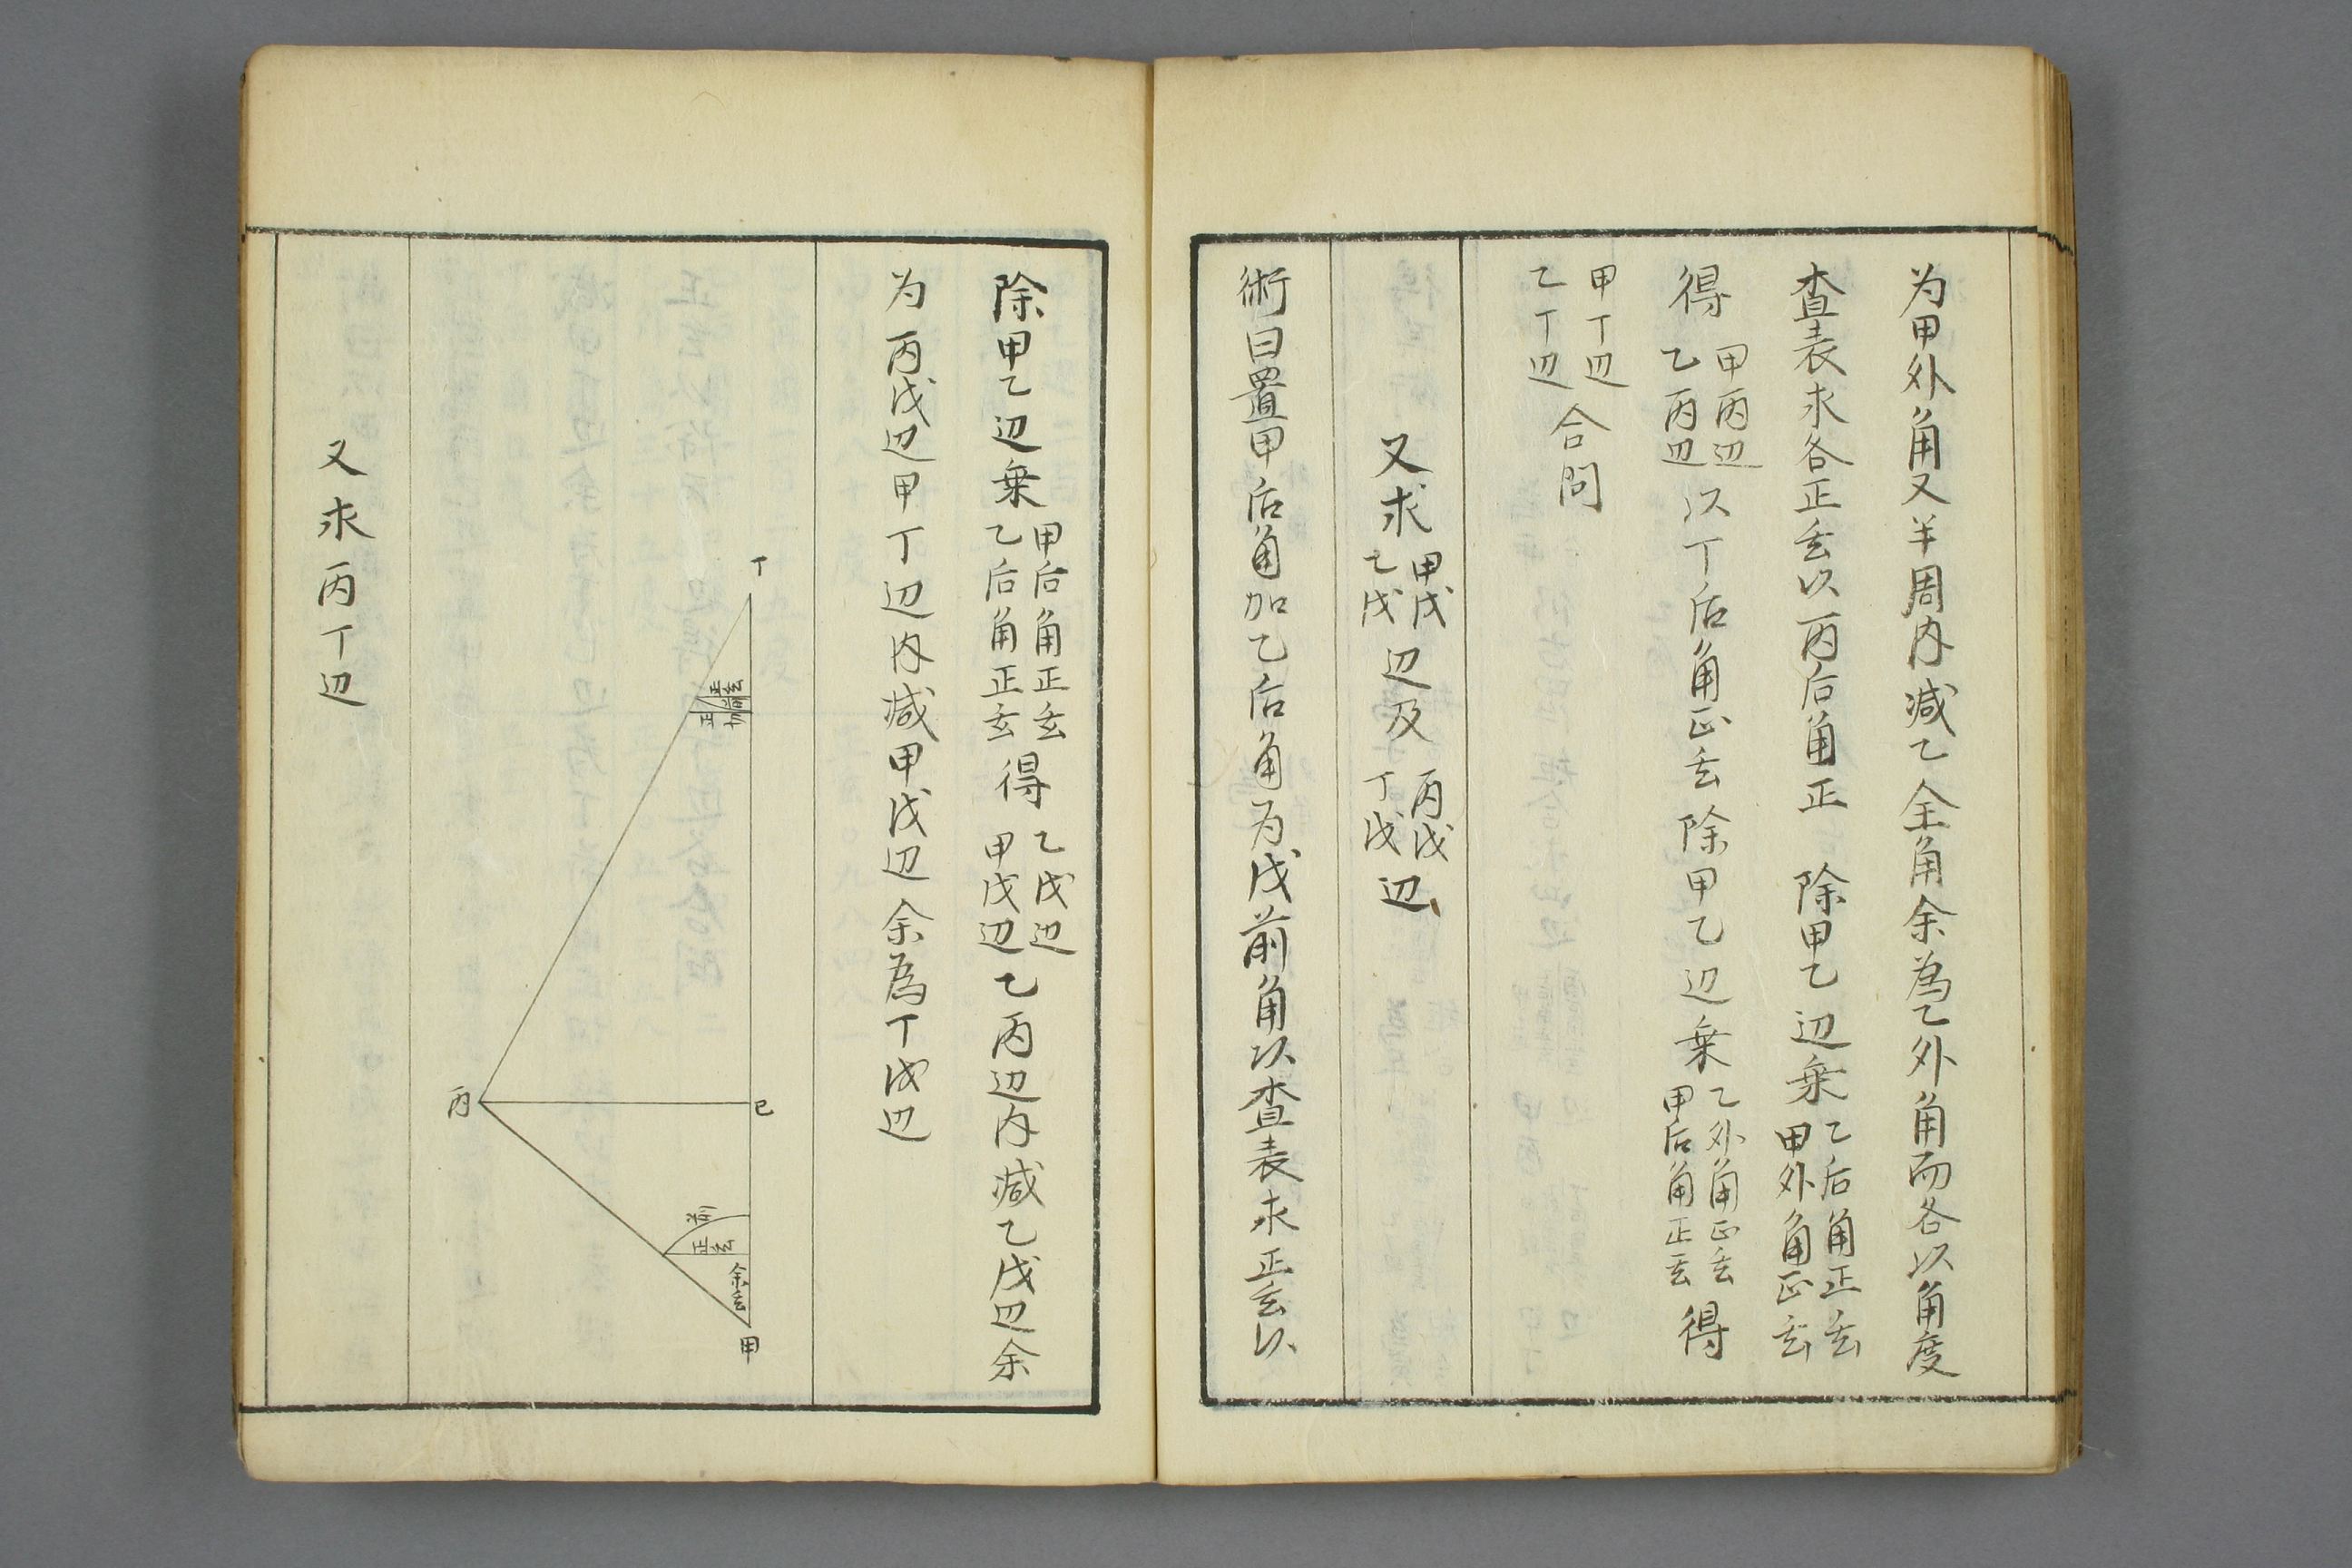 为甲外角又半周内减乙全角余為乙外角而各以角度
查表求各正玄以丙后角正 除甲乙辺乗乙后角正玄
甲外角正玄
得甲丙辺
乙丙辺以丁后角正玄除甲乙辺乗乙外角正玄
甲后角正玄得
甲丁辺
乙丁辺合問
又求甲戊
乙戊辺及丙戊
丁戊辺
術曰置甲后角加乙后角为戊前角以查表求正玄以
除甲乙辺乗甲后角正玄
乙后角正玄得乙戊辺
甲戊辺乙丙辺内减乙戊辺余
为丙戊辺甲丁辺内减甲戊辺余為丁戊辺
丁
正玄
前
正切
丙
已
前
正玄
余玄
甲
又求丙丁辺